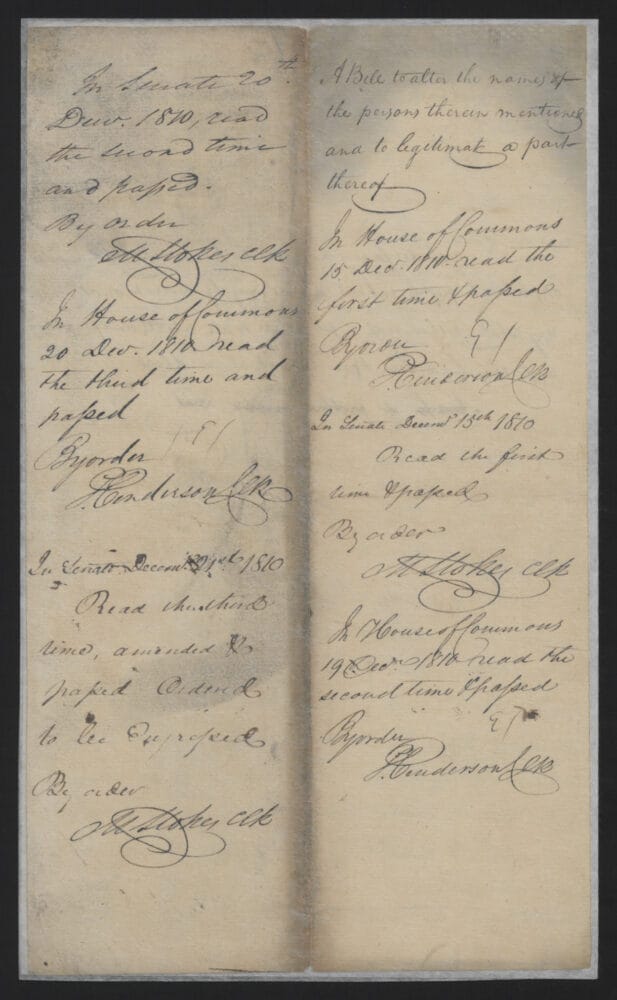 In Senate 20th.
Decr. 1810, read
the second time
and passed.
By order
M Stokes Clk
In House of Commons
20 Decr. 1810 read
the third time and
passed
By order
P. Henderson Clk
In Senate Decemr. 21st 1810
Read the third
time, amended &
passed Ordered
to be Engrossed
By order
M Stokes Clk
A Bill to alter the names of
the persons therein mentioned
and to legitimate a part
thereof
In House of Commons
15 Decr. 1810 read the
first time & passed
By order
P. Henderson Clk
In Senate Decemr 15th 1810
Read the first
time & passed
By order
M Stokes Clk
In House of Commons
19 Decr. 1810 read the
second time & passed
By order
P. Henderson Clk